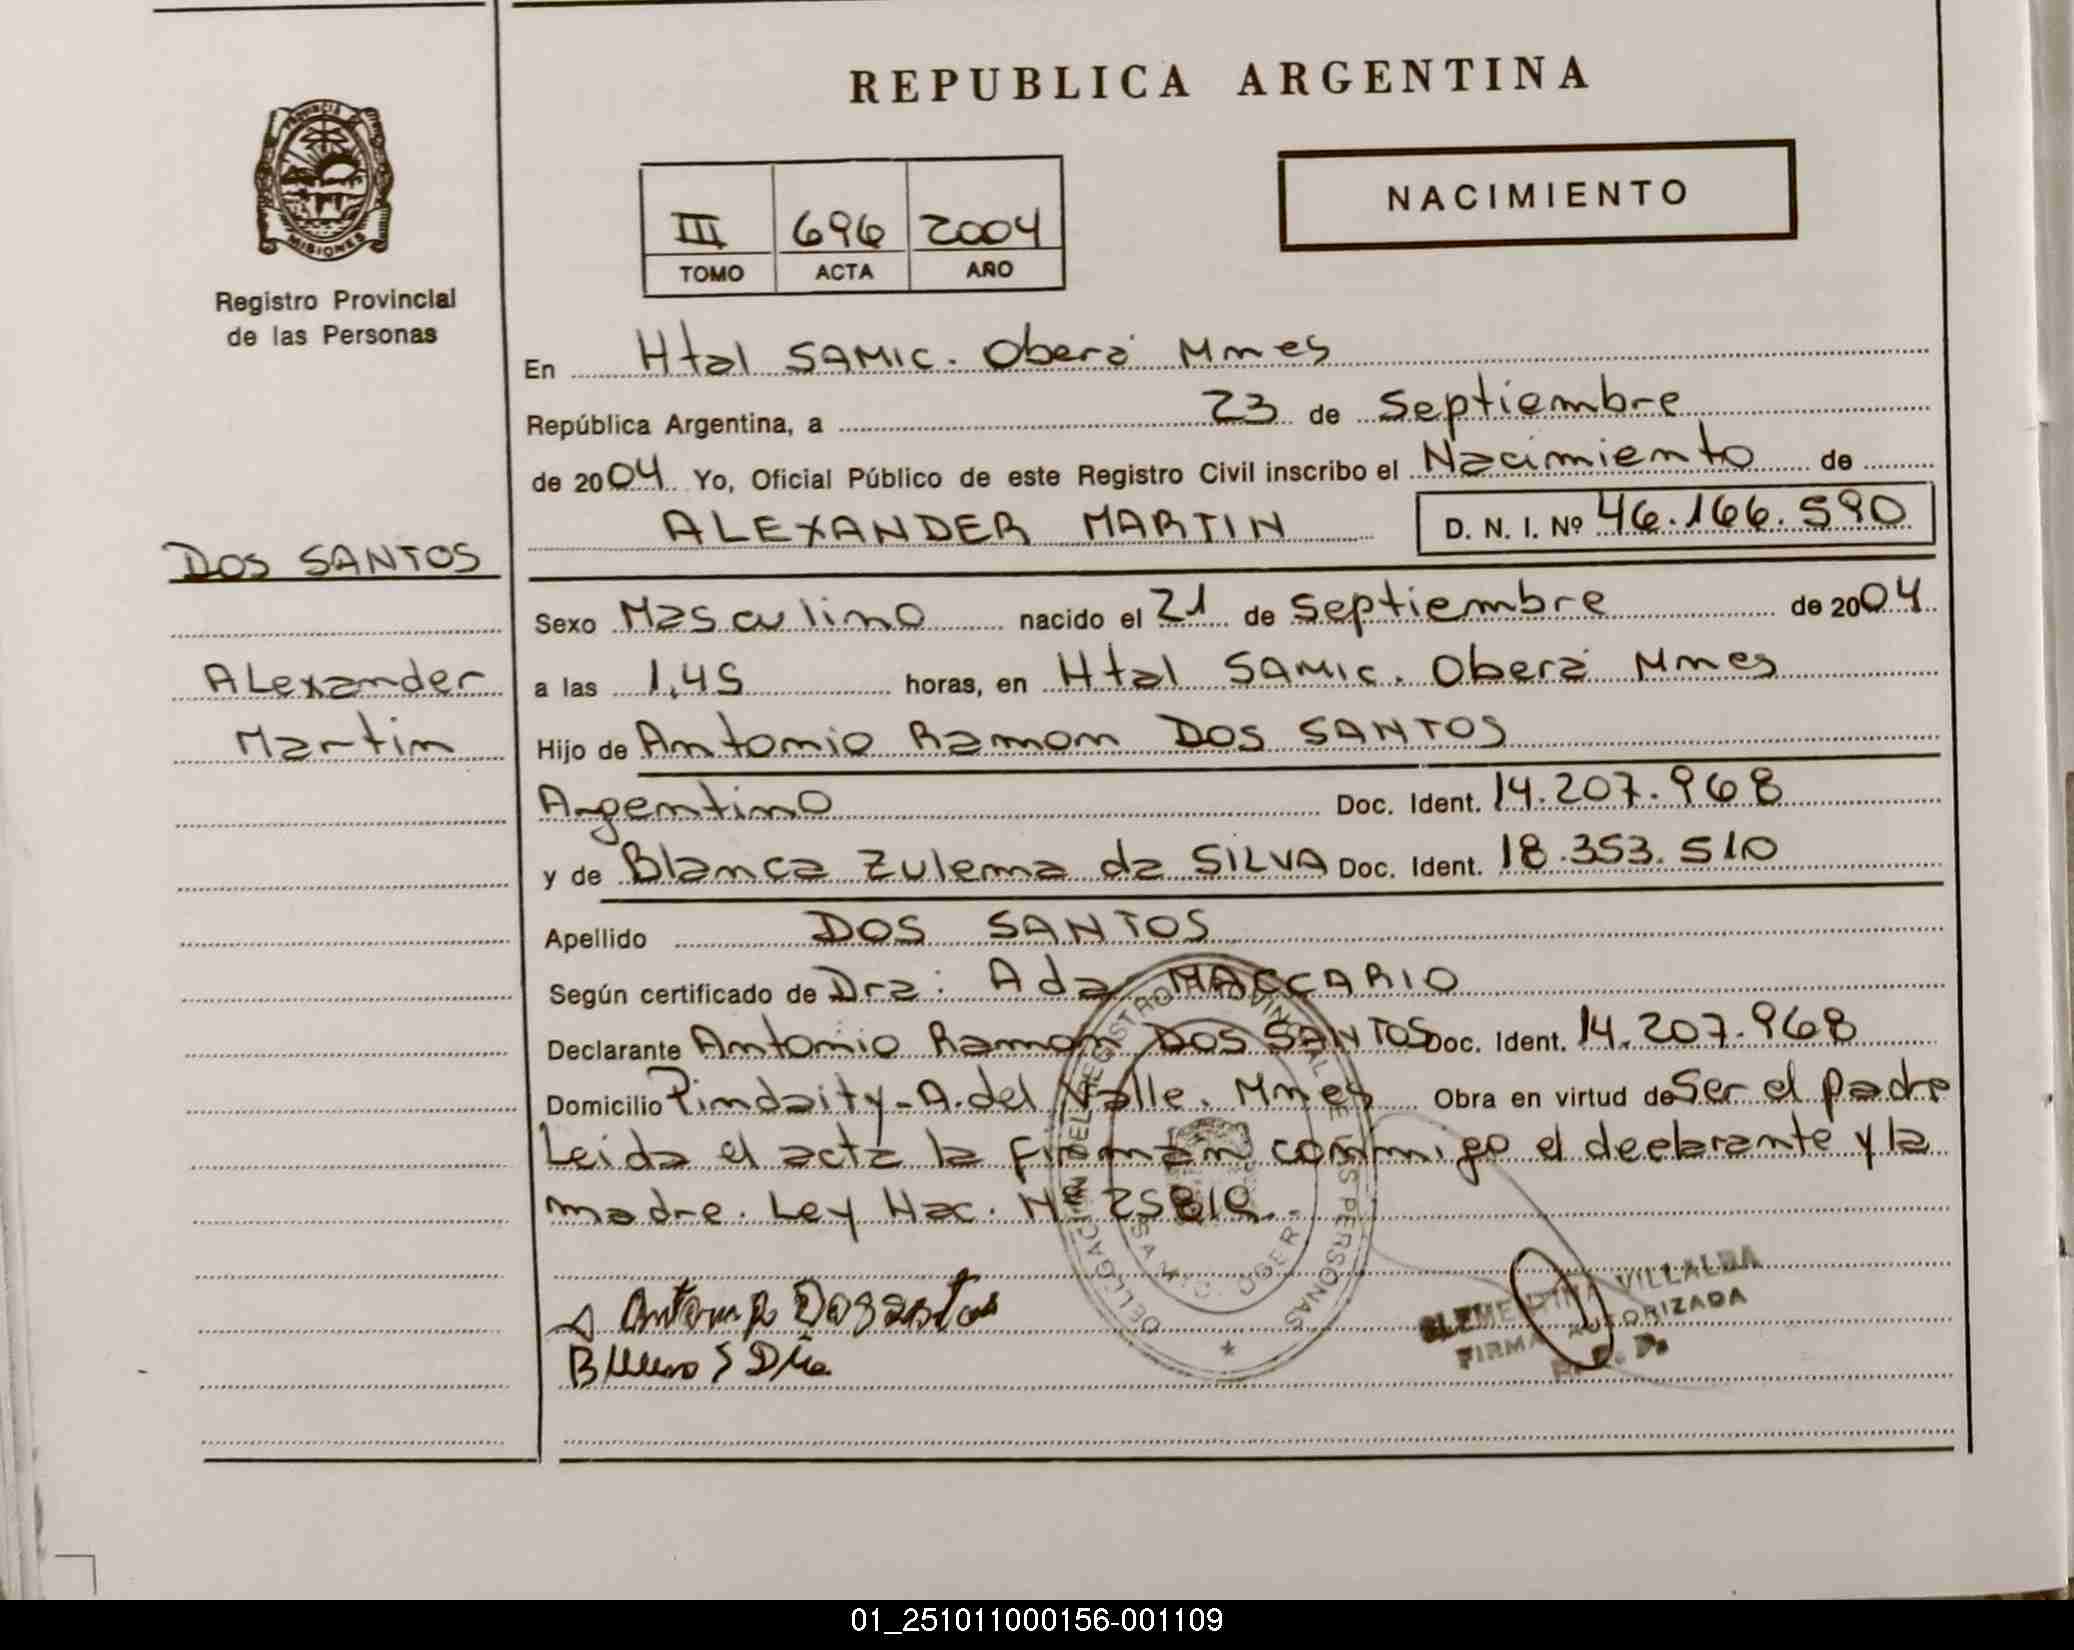 REPUBLICA ARGENTINA
PROVINCIA DE
MISIONES
Registro Provincial
de las Personas
III 696 2004
TOMO ACTA AÑO
NACIMIENTO
En Htal SAMIC. Oberá Mnes
República Argentina, a 23 de Septiembre
de 2004 Yo, Oficial Público de este Registro Civil inscribo el Nacimiento de
ALEXANDER MARTIN D. N. I. Nº 46.166.590
DOS SANTOS
Alexander
Martin
Sexo Masculino nacido el 21 de Septiembre de 2004
a las 1,45 horas, en Htal SAMIC. Oberá Mnes
Hijo de Antonio Ramon DOS SANTOS
Argentino Doc. Ident. 14.207.968
y de Blanca Zulema da SILVA Doc. Ident. 18.353.510
Apellido DOS SANTOS
Según certificado de Dra: Ada MACCARIO
Declarante Antonio Ramon DOS SANTOS Doc. Ident. 14.207.968
Domicilio Pindaity-A.del Valle. Mnes Obra en virtud de Ser el padre
Leida el acta la firman conmigo el declarante y la
madre. Ley Nac. Nº 25819.
DELEGACION DEL REGISTRO PROVINCIAL DE LAS PERSONAS
CLEMENTINA VILLALBA
FIRMA AUTORIZADA
R. P. P.
01_251011000156-001109